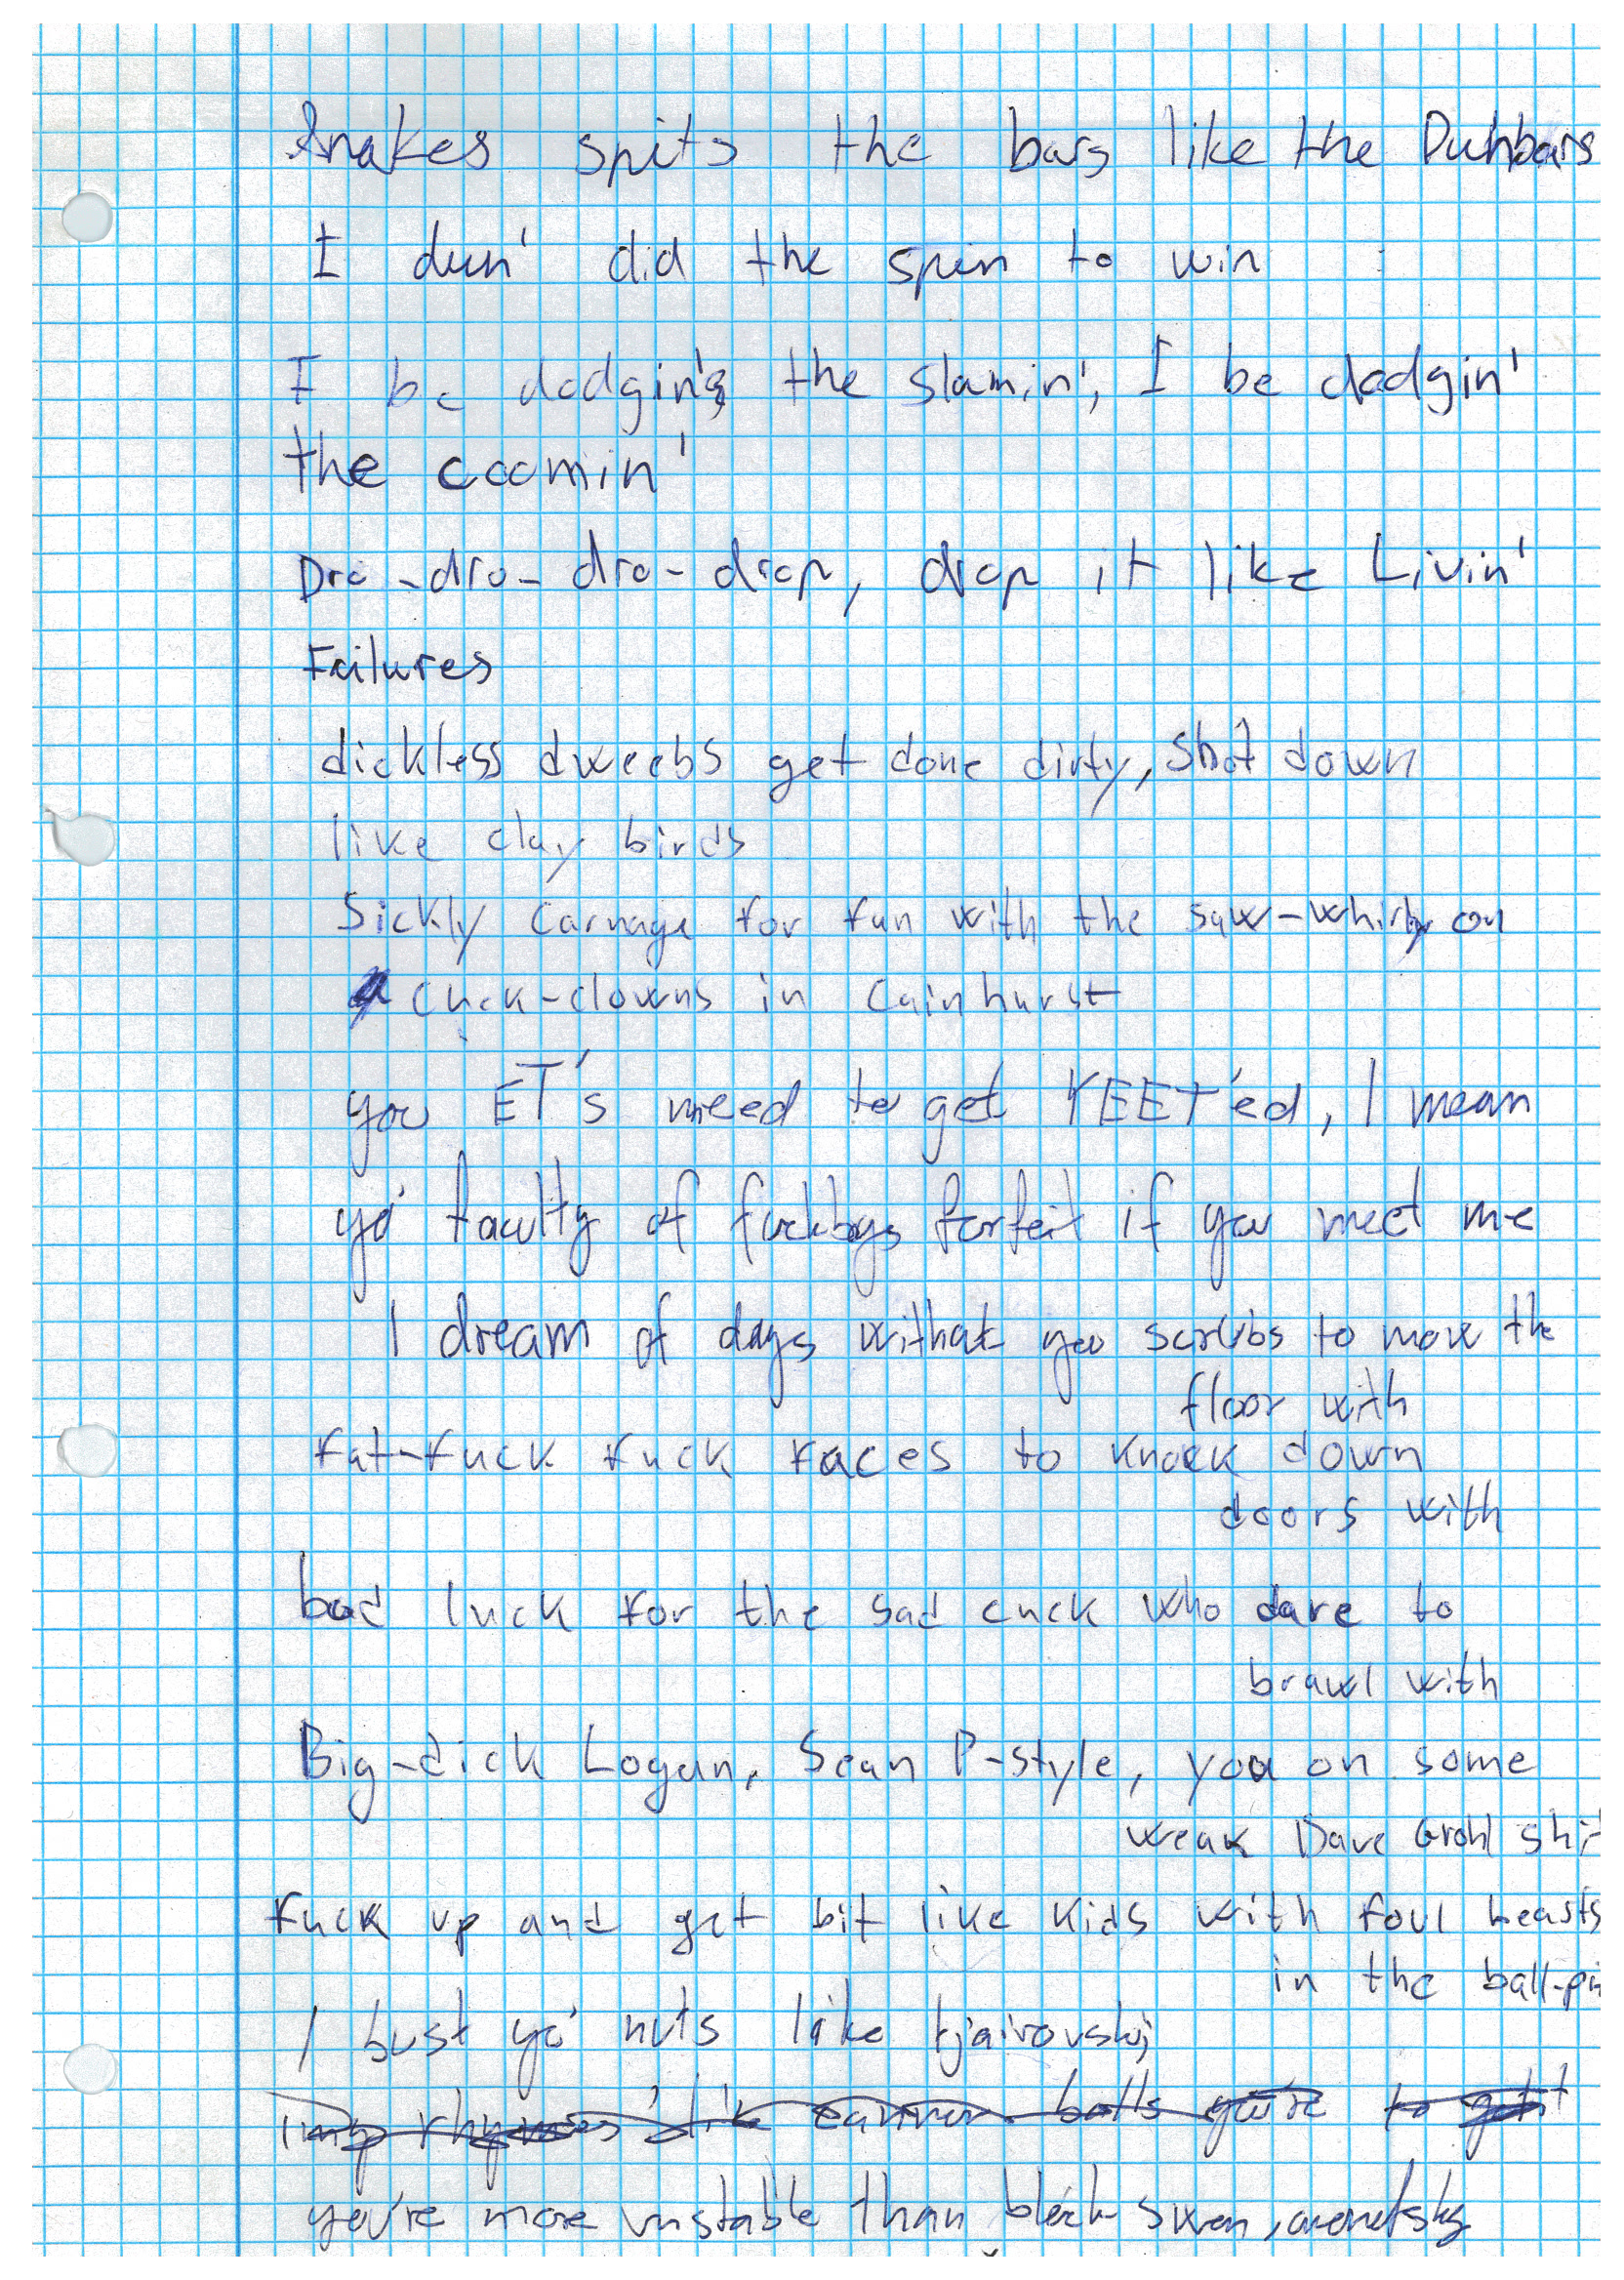 Snakes spits the bars like the Duhbars
I dun' did the spin to win
I be dodgin' the slamin', I be dodgin'
the coomin'
Dro-dro-dro-drop, drop it like Livin'
Failures
dickless dweebs get done dirty, shot down
like clay birds
Sickly carnage for fun with the saw-whirly on
cuck-clowns in Cainhurst
you ET's need to get YEET'ed, I mean
yo' faculty of fuckboys forfeit if you meet me
I dream of days without you scrubs to mow the
floor with
Fat-fuck fuck faces to knock down
doors with
bad luck for the sad cuck who dare to
brawl with
Big-dick Logan, Sean P-style, you on some
weak Dave Grohl shit
Fuck up and get bit like kids with foul beasts
in the ball-pi
I bust yo' nuts like
my rhymes like cannon balls you're to get
you're more unstable than black swan,